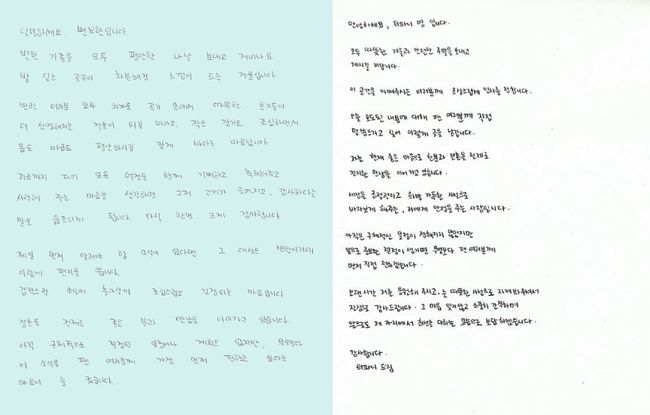 안녕하세요. 변요한입니다.
변한 가족들 모두 평안한 나날 보내고 계시나요
발 딛는 곳곳이 차분해진 느낌이 드는 겨울입니다
변한 여러분 모두 차가운 공기 속에서 따뜻한 온기들이
더 선명해지는 겨울이 되길 바라고, 작은 감기도 조심하면서
몸도 마음도 평안하시길 깊게 바라는 마음입니다
지금까지 저의 모든 여정을 함께 기뻐하고 축하해주고
사랑해 주는 마음을 생각하면 그저 고개가 숙여지고, 감사하다는
말을 읊조리게 됩니다 다시 한번 크게 감사합니다
제일 먼저 알려야 할 소식이 있다면 그 대상은 변한이기에
이렇게 편지를 씁니다.
갑작스런 소식에 놀라실까 조심스럽고 긴장되는 마음입니다
결혼을 전제로 좋은 분과 만남을 이어가고 있습니다
아직 구체적으로 결정된 일정이나 계획은 없지만, 무엇보다
이 소식을 팬 여러분께 가장 먼저 전하고 싶다는
마음이 늘 컸습니다.
안녕하세요, 티파니 영 입니다.
모두 따뜻한 겨울과 안전한 주말을 보내고
계시길 바랍니다.
이 공간을 아껴주시는 여러분께 조심스럽게 인사를 전합니다.
오늘 보도된 내용에 대해 팬 여러분께 직접
말씀드리고 싶어 이렇게 글을 남깁니다.
저는 현재 좋은 마음으로 한분과 결혼을 전제로
진지한 만남을 이어가고 있습니다.
세상을 긍정적이고 희망 가득한 시선으로
바라보게 해주는, 저에게 안정을 주는 사람입니다.
아직은 구체적인 일정이 정해지지 않았지만
앞으로 중요한 결정이 있기면 무엇보다 팬 여러분께
먼저 직접 전하겠습니다.
오랜시간 저를 응원해 주시고, 늘 따뜻한 시선으로 지켜봐주셔서
진심으로 감사드립니다. 그 마음 잊지않고 소중히 간직하며
앞으로도 제 자리에서 최선을 다하는 모습으로 보답하겠습니다.
감사합니다.
티파니 드림